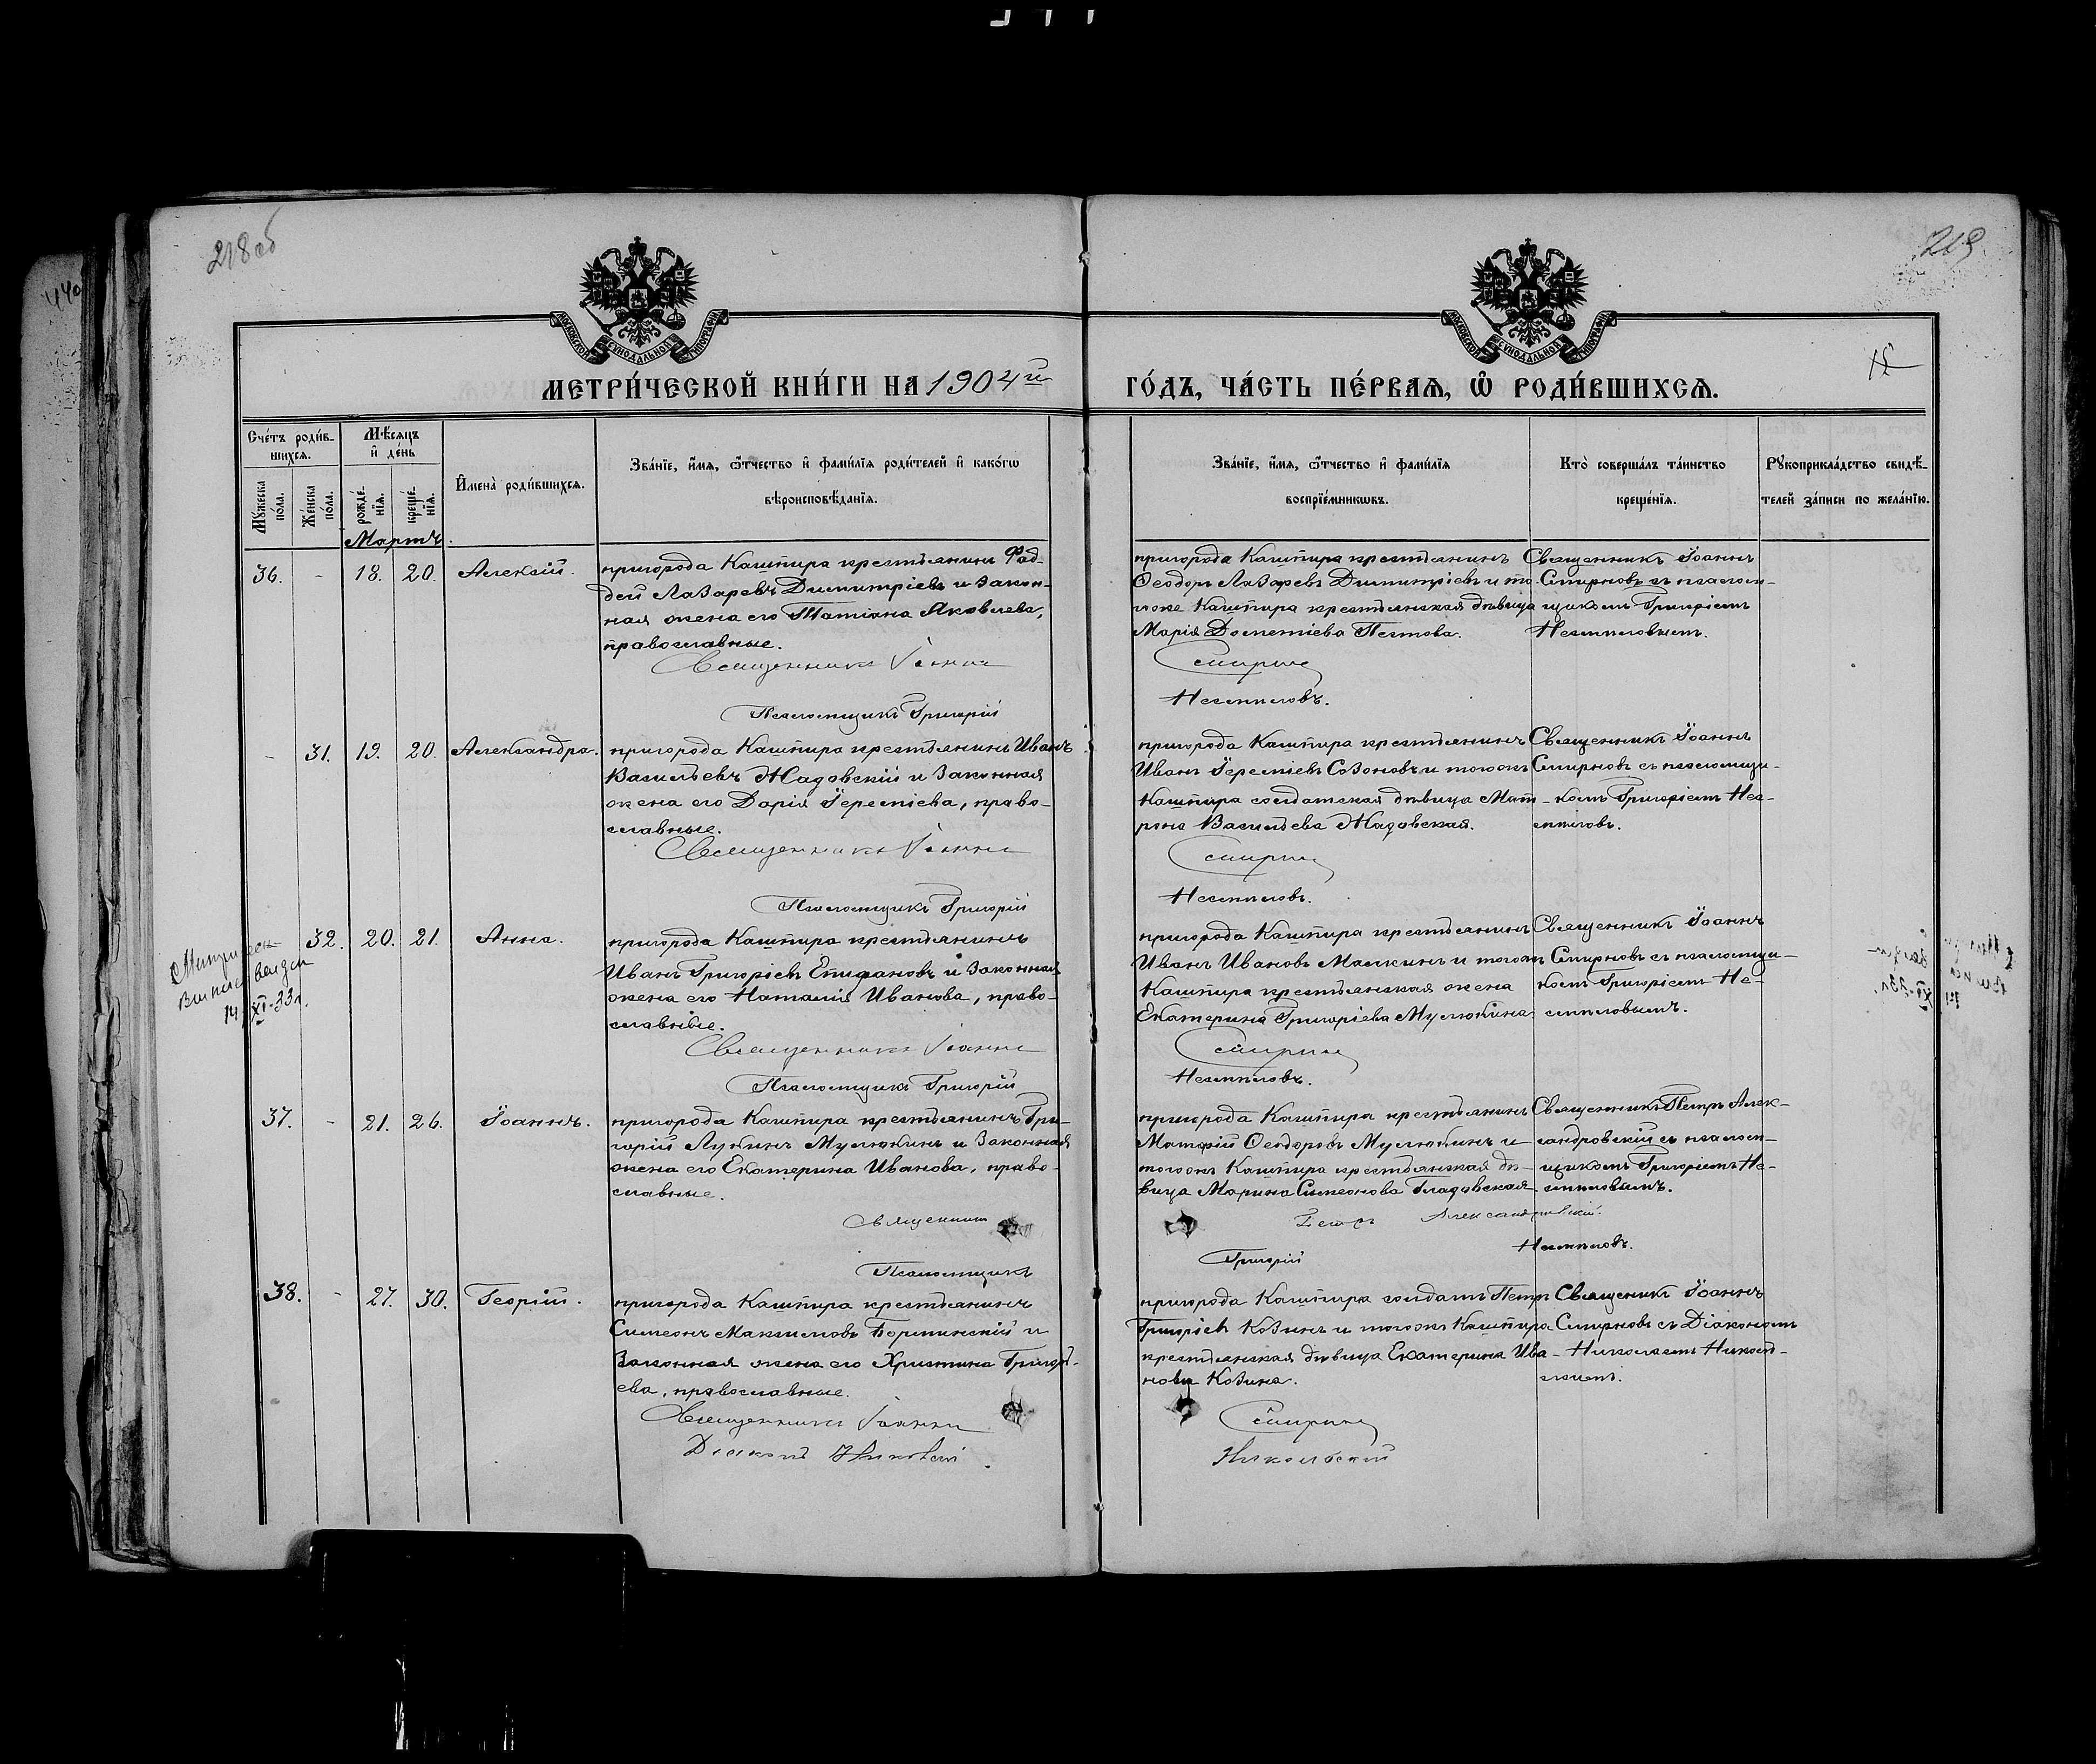 218об
219
440
МОСКОВСКОЙ СѴНОДАЛЬНОЙ ТИПОГРАФІИ
МОСКОВСКОЙ СѴНОДАЛЬНОЙ ТИПОГРАФІИ
МЕТРИ́ЧЕСКОЙ КНИ́ГИ НА 1904й
ГО́ДЪ, ЧА́СТЬ ПЕ́РВАѦ, Ѡ РОДИ́ВШИХСѦ.
Сче́тъ роди́в-
шихсѧ.
Мꙋ́жеска по́ла.
Же́нска по́ла.
Мѣ́сѧцъ и҆ де́нь
рожде́-нїѧ.
креще́-нїѧ.
И҆мена̀ роди́вшихсѧ.
Зва́нїе, и҆́мѧ, ѻ҆́тчество и҆ фами́лїѧ роди́телей и҆ како́гѡ
вѣроисповѣ́данїѧ.
Зва́нїе, и҆́мѧ, ѻ҆́тчество и҆ фами́лїѧ
воспрїе́мникѡвъ.
Кто̀ соверша́лъ та́инство
креще́нїѧ.
Рꙋкоприкла́дство свидѣ́-
телей за́писи по жела́нїю.
Мартъ.
36. - 18. 20. Алексій.
пригорода Кашпира крестьянинъ Фад-
дей Лазаревъ Димитріевъ и закон-
ная жена его Татіана Яковлева,
православные.
Священникъ Іоаннъ
Псаломщикъ Григорій
пригорода Кашпира крестьянинъ
Ѳеодоръ Лазаревъ Димитріевъ и то-
гоже Кашпира крестьянская дѣвица
Марія Дометіева Пестова.
Смирнов
Несмѣловъ.
Священникъ Іоаннъ
Смирновъ съ псалом-
щикомъ Григоріемъ
Несмѣловымъ.
- 31. 19. 20. Александра.
пригорода Кашпира крестьянинъ Иванъ
Васильевъ Жадовскій и законная
жена его Дарія Іереміева, право-
славные.
Священникъ Іоаннъ
Псаломщикъ Григорій
пригорода Кашпира крестьянинъ
Иванъ Іереміевъ Созоновъ и тогожъ
Кашпира солдатская дѣвица Мат-
рона Васильева Жадовская.
Смирнов
Несмѣловъ.
Священникъ Іоаннъ
Смирновъ съ псаломщи-
комъ Григоріемъ Нес-
мѣловъ.
32. 20. 21. Анна.
14/XI-33г.
пригорода Кашпира крестьянинъ
Иванъ Григоріевъ Епифановъ и законная
жена его Наталія Иванова, право-
славные.
Священникъ Іоаннъ
Псаломщикъ Григорій
пригорода Кашпира крестьянинъ
Иванъ Ивановъ Малкинъ и тогожъ
Кашпира крестьянская жена
Екатерина Григоріева Муслюкина
Смирнов
Несмѣловъ.
Священникъ Іоаннъ
Смирновъ съ псаломщи-
комъ Григоріемъ Не-
смѣловымъ.
37. - 21. 26. Іоаннъ.
пригорода Кашпира крестьянинъ Гри-
горій Лукинъ Муслюкинъ и законная
жена его Екатерина Иванова, право-
славные.
Священникъ
Псаломщикъ
пригорода Кашпира крестьянинъ
Матѳій Ѳеодоровъ Муслюкинъ и
тогожъ Кашпира крестьянская дѣ-
вица Марина Симеонова Гладовская
Петръ Александровскій.
Григорій Несмѣловъ.
Священникъ Петръ Алек-
сандровскій съ псалом-
щикомъ Григоріемъ Не-
смѣловымъ.
38. - 27. 30. Георгій.
пригорода Кашпира крестьянинъ
Симеонъ Максимовъ Бортинскій и
законная жена его Христина Григорь-
ева, православные.
Священникъ Іоаннъ
Діаконъ Николай
пригорода Кашпира солдатъ Петръ
Григоріевъ Козинъ и тогожъ Кашпира
крестьянская дѣвица Екатерина Ива-
нова Козина.
Смирнов
Никольскій
Священикъ Іоаннъ
Смирновъ съ Діакономъ
Николаемъ Николь-
скимъ.